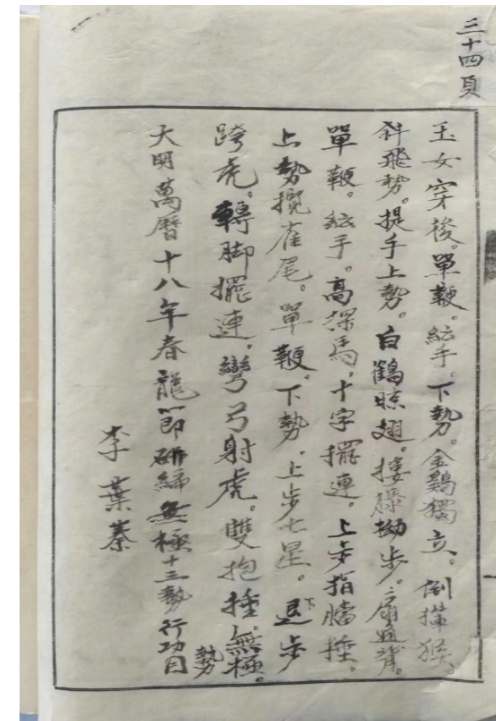 三十四頁
玉女穿後。單鞭。紜手。下勢。金鷄獨立。倒攆猴。
斜飛勢。提手上勢。白鶴晾翅。摟膝拗步。扇通背。
單鞭。紜手。高探馬。十字擺連。上步指膅捶。
上勢攬雀尾。單鞭。下勢。上步七星。退步
跨虎。轉脚擺連。彎弓射虎。雙抱捶。無極勢
大明萬曆十八年春龍節研締無極十三勢行功目
李葉蓁